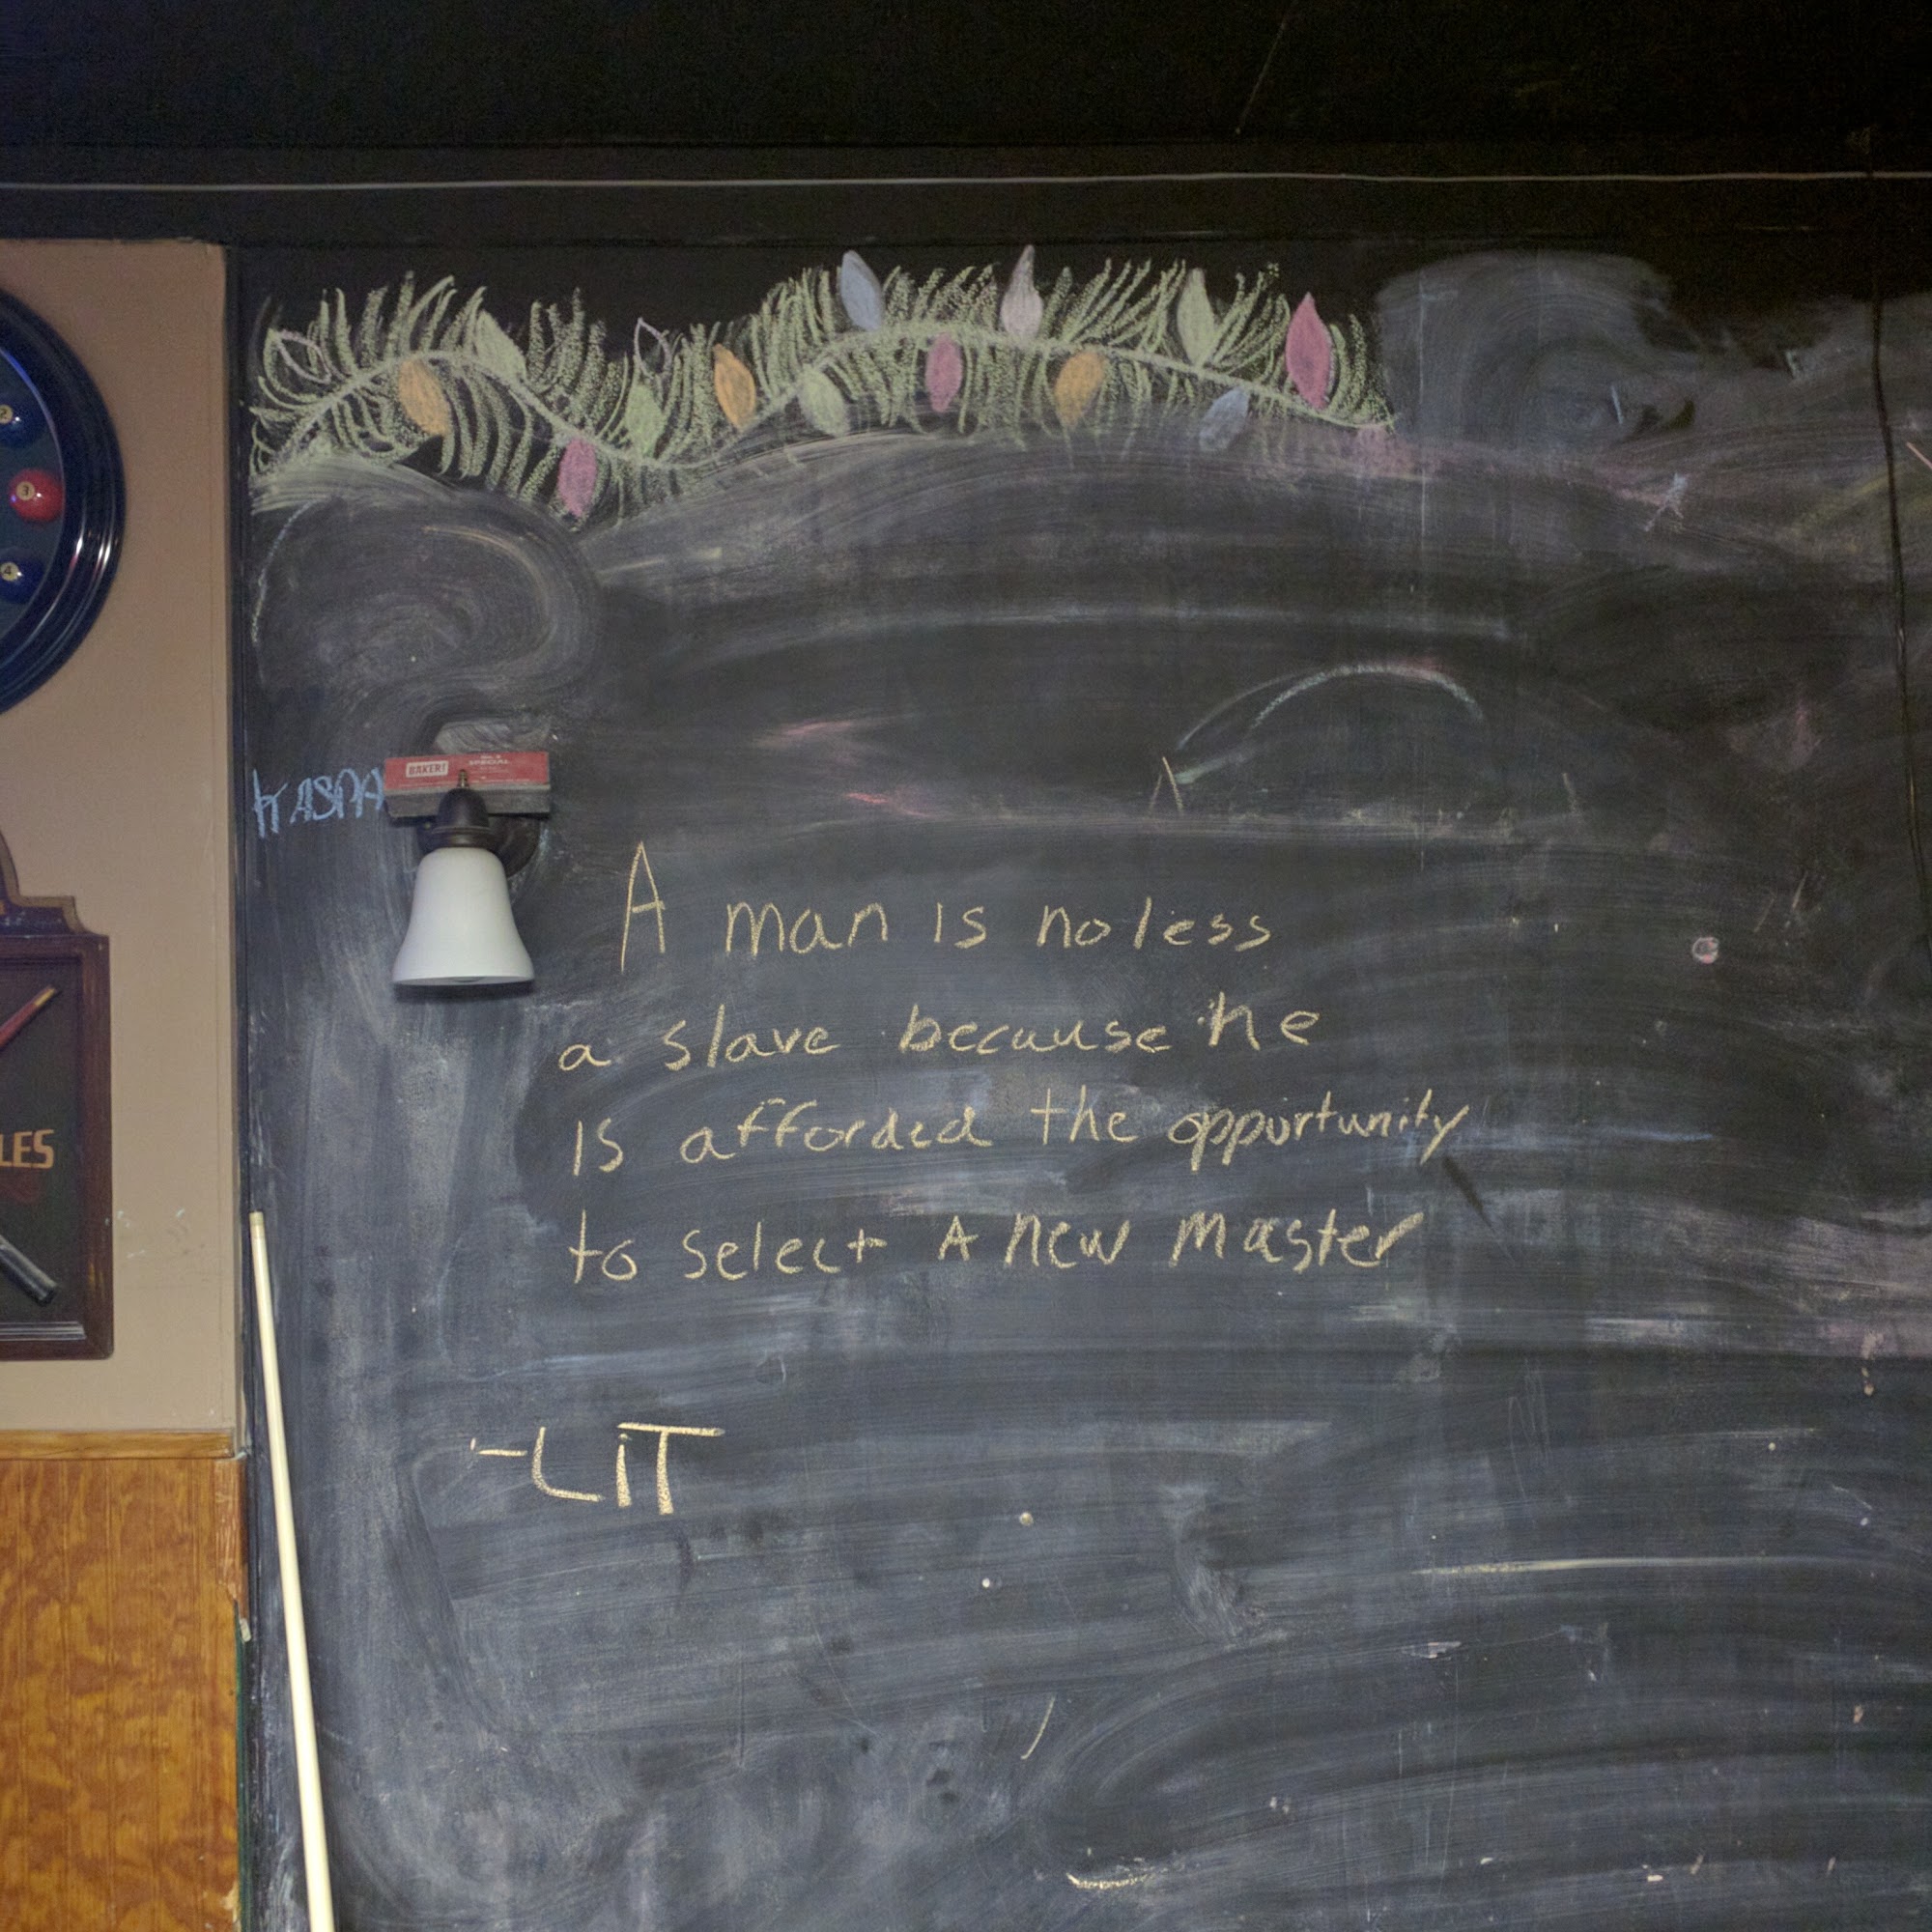 2
3
4
BAKER!
SPECIAL
KASPA
A man is no less
a slave because he
is afforded the opportunity
to select A new master
LES
-LiT